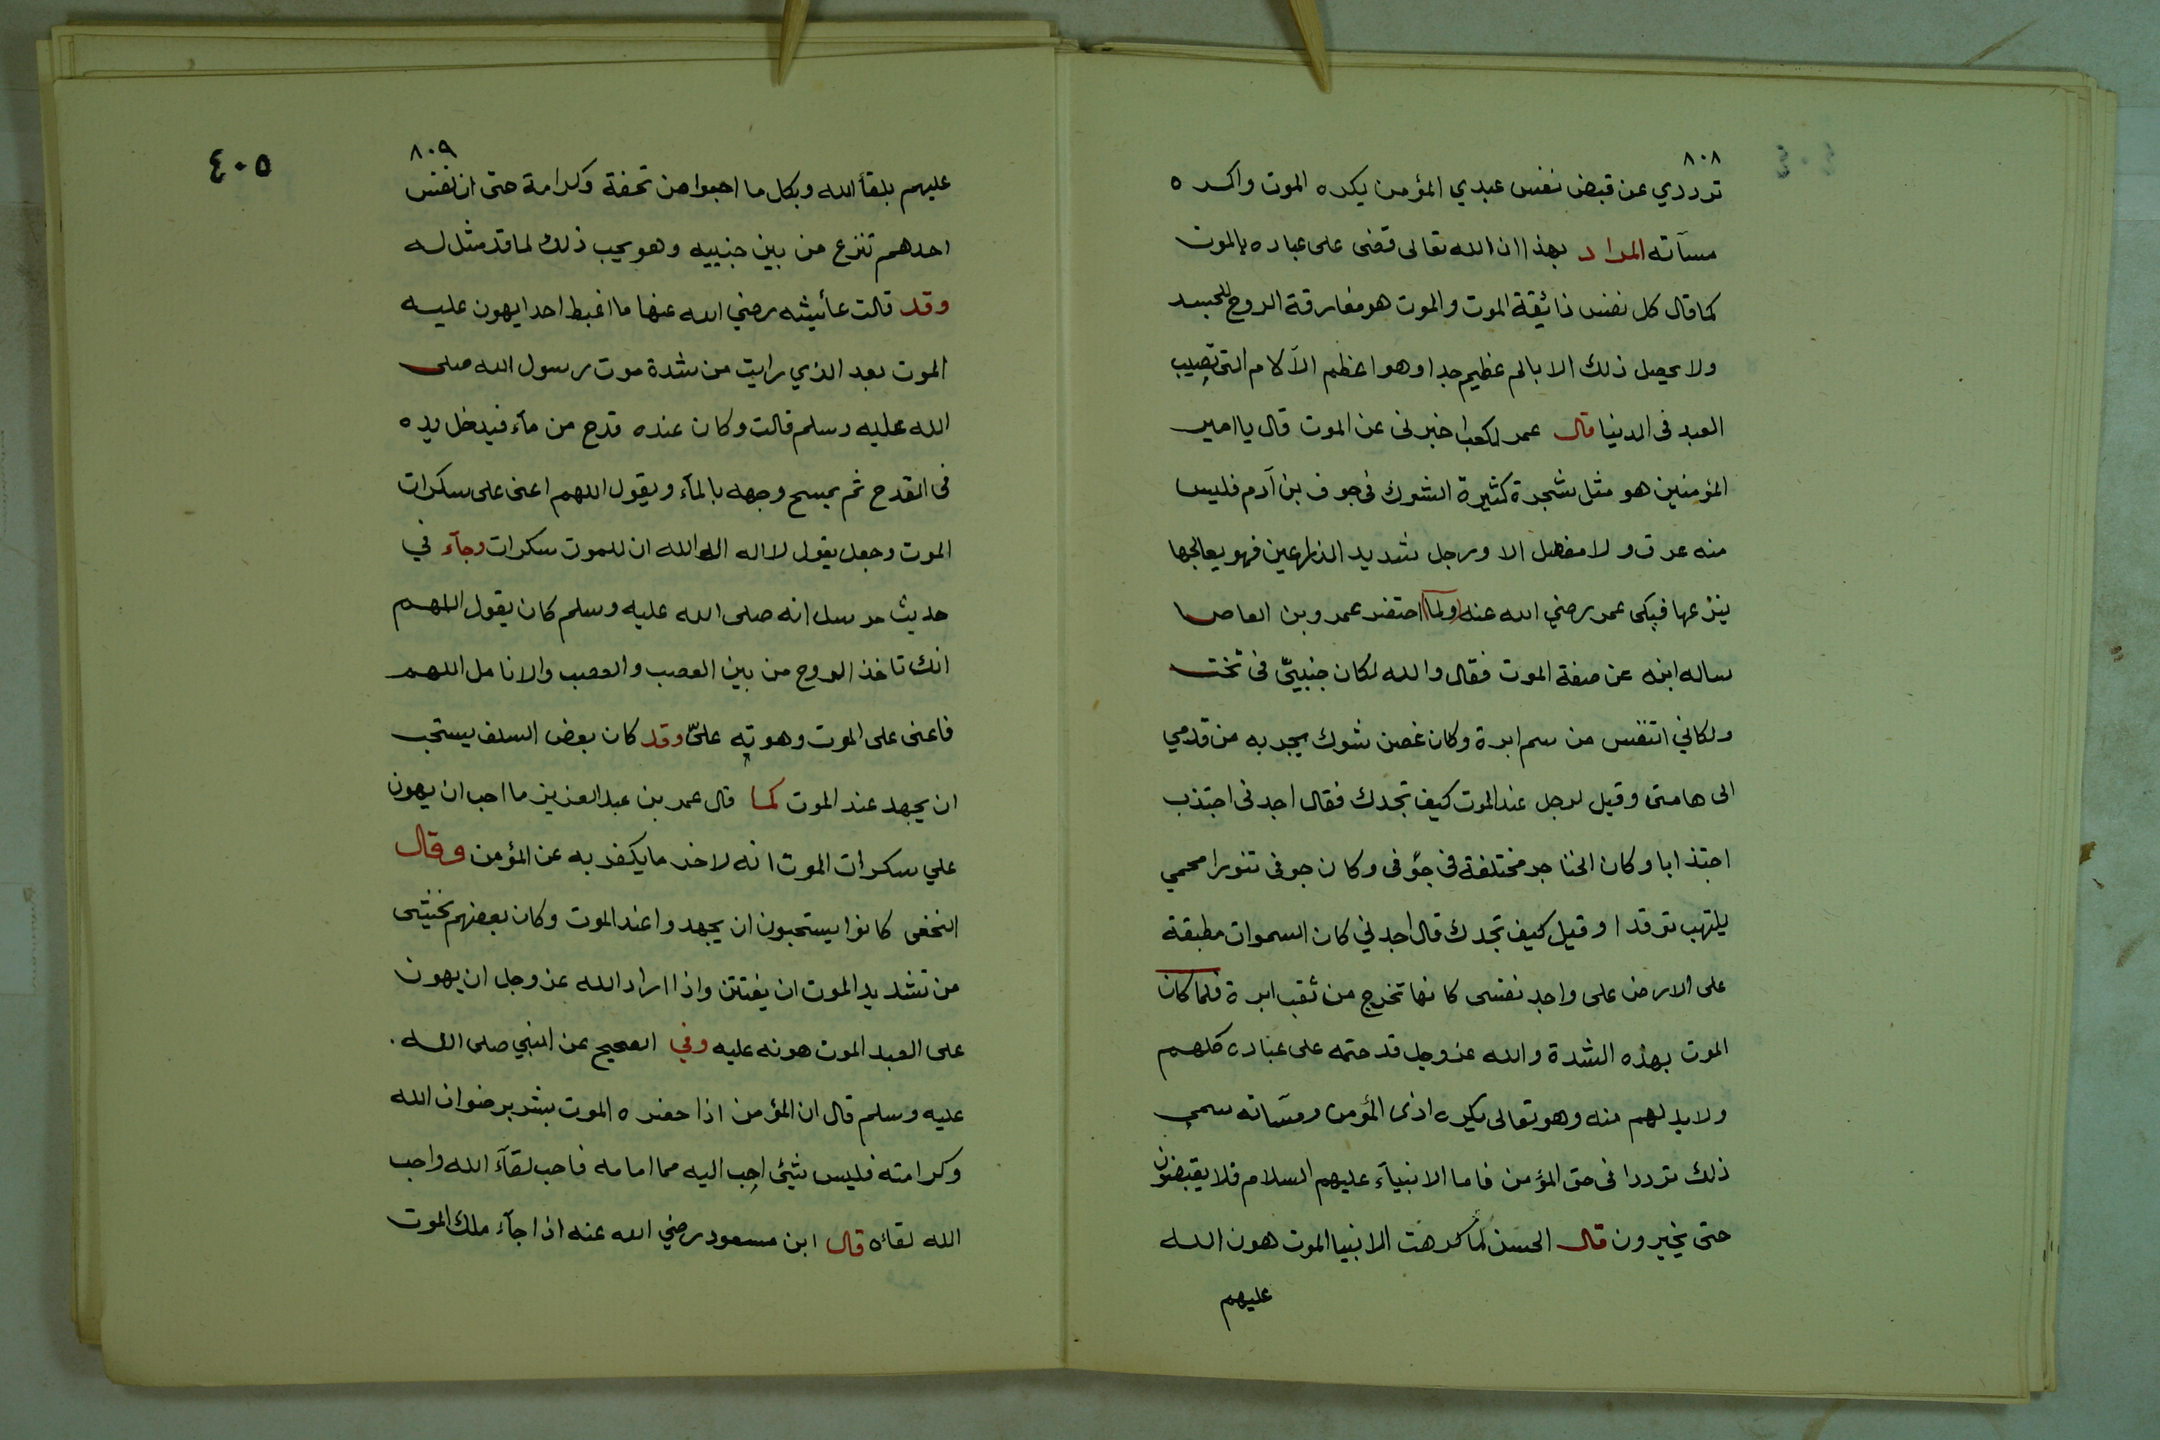 ٨٠٨
ترددي عن قبض نفس عبدي المؤمن يكره الموت واكره
مسآته المراد بهذا ان الله تعالى قضى على عباده بالموت
كما قال كل نفس ذائقة الموت والموت هو مفارقة الروح للجسد
ولا يحصل ذلك الا بالم عظيم جدا وهو اعظم الآلام التى تصيب
العبد فى الدنيا قال عمر لكعب اخبرنى عن الموت قال يا امير
المؤمنين هو مثل شجرة كثيرة الشوك فى جوف بن آدم فليس
منه عرق ولا مفصل الا ورجل شديد الذراعين فهو يعالجها
ينزعها فبكى عمر رضي الله عنه ولما احتضر عمرو بن العاص
ساله ابنه عن صفة الموت فقال والله لكان جنبيّ فى تخت
ولكاني اتنفس من سم ابرة وكان غصن شوك يجر به من قدمي
الى هامتى وقيل لرجل عند الموت كيف تجدك فقال اجدنى اجتذب
اجتذابا وكان الخناجر مختلفة فى جوفى وكان جوفى تنورا محمي
يلتهب توقدا وقيل كيف تجدك قال اجدني كان السموات مطبقة
على الارض على واجد نفسى كانها تخرج من ثقب ابرة فلما كان
الموت بهذه الشدة والله عز وجل قد حتمه على عباده كلهم
ولا بد لهم منه وهو تعالى يكره اذى المؤمن ومسآته سمي
ذلك ترددا فى حق المؤمن فاما الانبيآء عليهم السلام فلا يقبضون
حتى يخيرون قال الحسن لما كرهت الانبيا الموت هون الله
عليهم
٨٠٩
٤٠٥
عليهم بلقآ الله وبكل ما احبوا من تحفة وكرامة حتى ان نفس
احدهم تنزع من بين جنبيه وهو يحب ذلك لما قد مثل له
وقد قالت عائيشه رضي الله عنها ما اغبط احدا يهون عليه
الموت بعد الذي رايت من شدة موت رسول الله صلى
الله عليه وسلم قالت وكان عنده قدح من مآء فيدخل يده
فى القدح ثم يمسح وجهه بالمآء ويقول اللهم اعنى على سكرات
الموت وجعل يقول لا اله الا الله ان للموت سكرات وجآء في
حديث مرسل انه صلى الله عليه وسلم كان يقول اللهم
انك تاخذ الروح من بين العصب والعصب والانامل اللهم
فاعنى على الموت وهونه عليّ وقد كان بعض السلف يستحب
ان يجهد عند الموت كما قال عمر بن عبد العزيز ما احب ان يهون
علي سكرات الموت انه لاخر ما يكفر به عن المؤمن وقال
النخعى كانوا يستحبون ان يجهدوا عند الموت وكان بعضهم يخشى
من تشديد الموت ان يفتتن واذا اراد الله عز وجل ان يهون
على العبد الموت هونه عليه وفي الصحيح عن النبي صلى الله
عليه وسلم قال ان المؤمن اذا حضره الموت بشر برضوان الله
وكرامته فليس شئى احب اليه مما امامه فاحب لقآء الله واحب
الله لقائه قال ابن مسعود رضي الله عنه اذا جآء ملك الموت